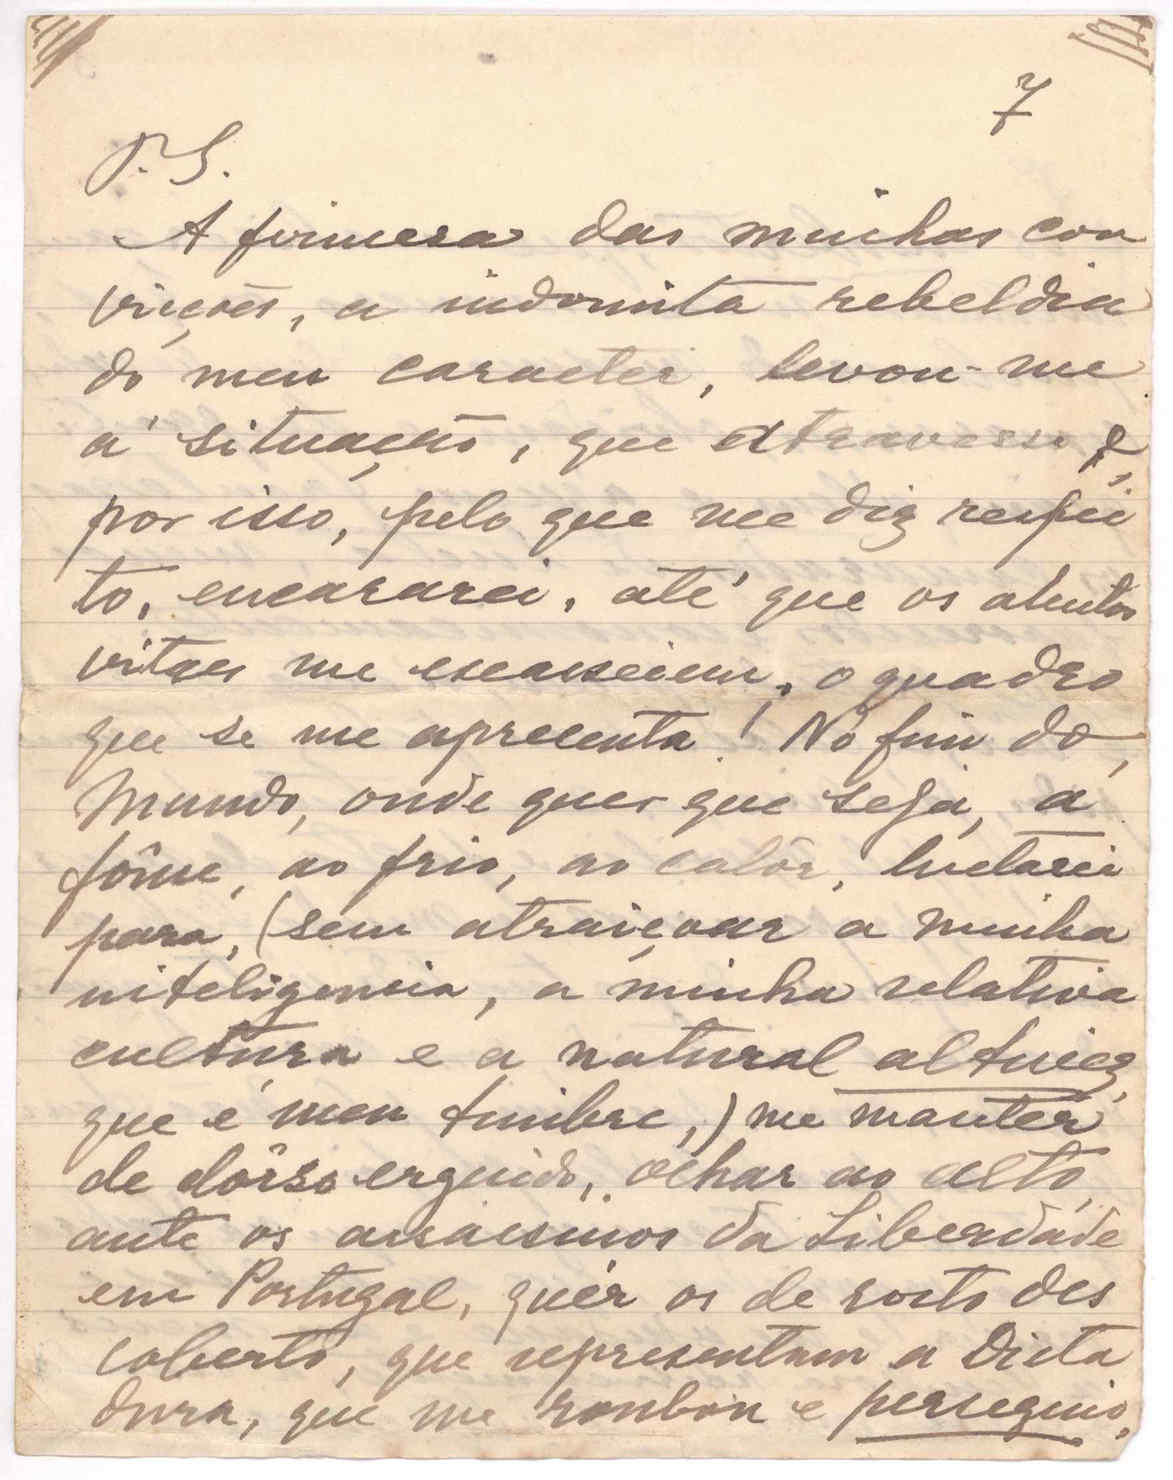 7
P.S.
A firmesa das minhas con
vicções, a indomita rebeldia
do meu caracter, levou-me
á situação, que atravesso e,
por isso, pelo que me diz respei
to, encararei, até que os alentos
vitaes me escasseiem, o quadro
que se me apresenta! No fim do
Mundo, onde quer que seja, á
fôme, ao frio, ao calôr, luctarei
para, (sem atraiçoar a minha
inteligencia, a minha relativa
cultura e a natural altivez,
que é meu timbre,) me manter
de dôrso erguido, olhar ao alto,
ante os assassinos da Liberdade
em Portugal, quér os de rosto des
coberto, que representam a Dicta
dura, que me roubou e perseguio,